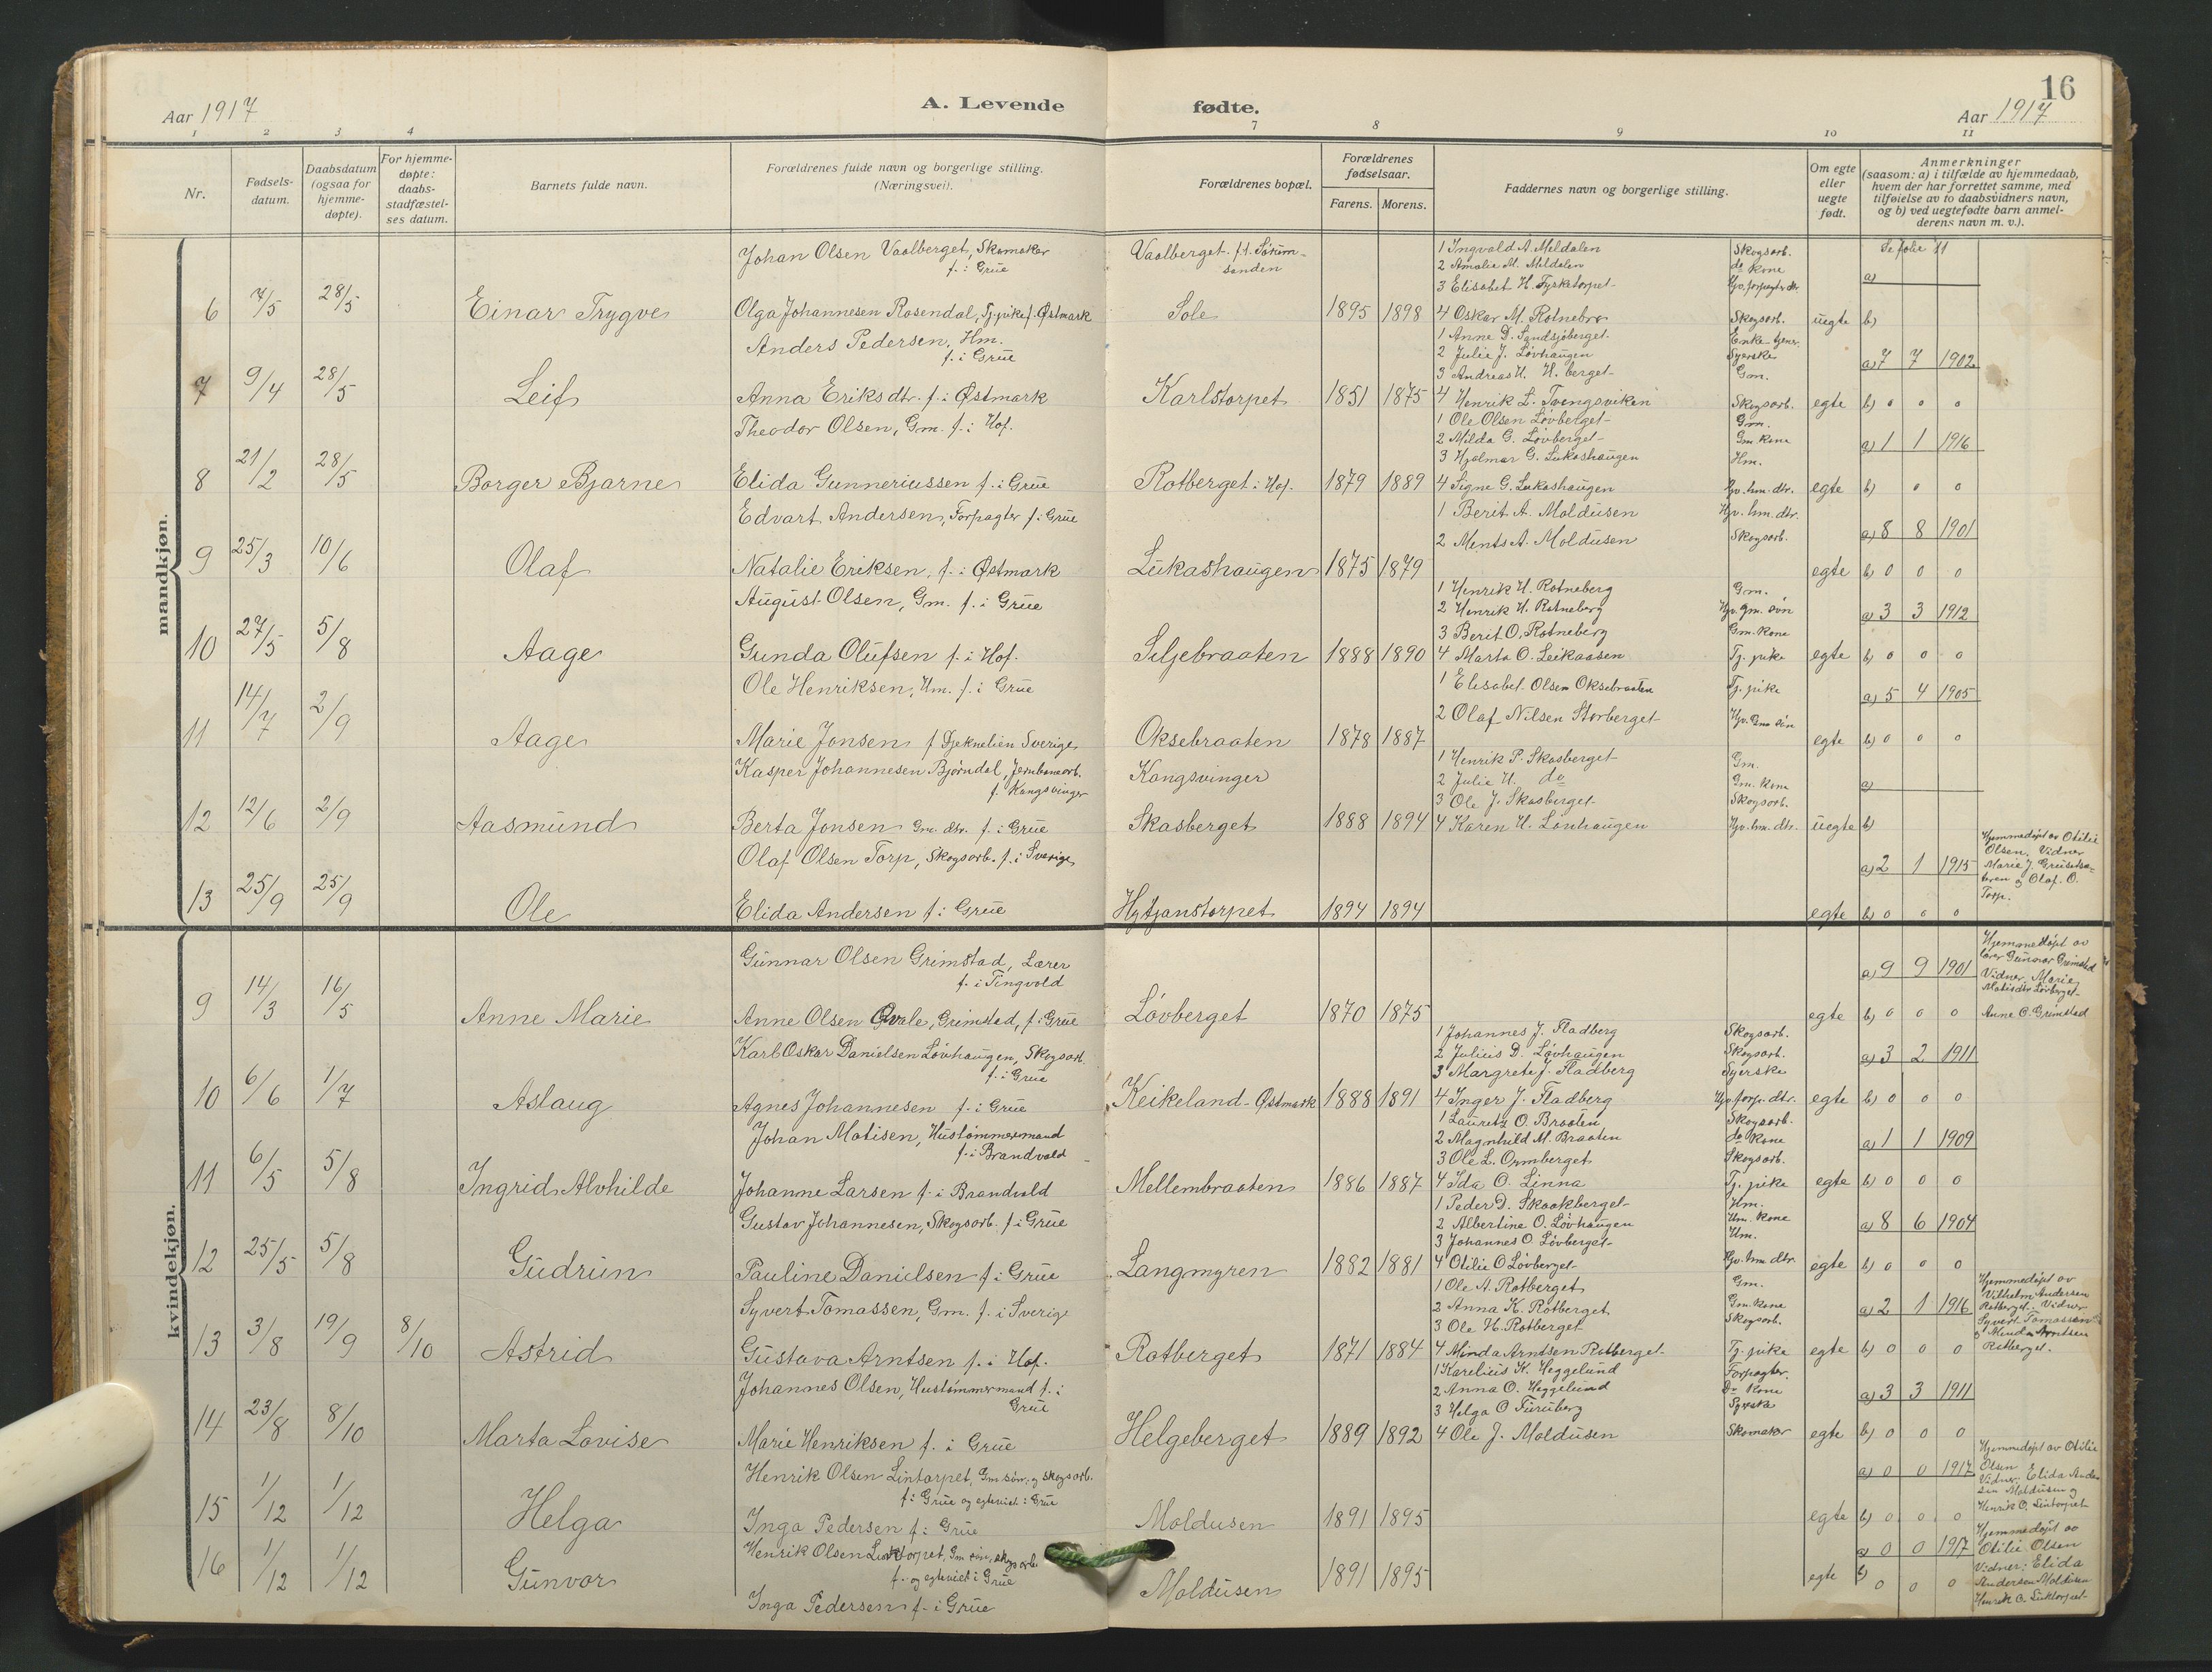 Aar 1917
A. Levende
fødte.
16
Aar 1917
1 2 3 4
7 8 9 10 11
Nr.
Fødsels-
datum.
Daabsdatum
(ogsaa for
hjemme-
døpte).
For hjemme-
døpte:
daabs-
stadfæstel-
ses datum.
Barnets fulde navn.
Forældrenes fulde navn og borgerlige stilling.
(Næringsvei).
Forældrenes bopæl.
Forældrenes
fødselsaar.
Farens. Morens.
Faddernes navn og borgerlige stilling.
Om egte
eller
uegte
født.
Anmerkninger
(saasom: a) i tilfælde av hjemmedaab,
hvem der har forrettet samme, med
tilføielse av to daabsvidners navn,
og b) ved uegtefødte barn anmel-
derens navn m. v.).
mandkjøn.
6 7/5 28/5 Einar Trygve
Johan Olsen Vaalberget, Skomaker
f. i Grue
Olga Johannesen Rosendal, Tj.pike f. Østmark
Vaalberget. f.t. Sørum-
sanden
Sole 1895 1898
1 Ingvald A. Meldalen Skogsarb.
2 Amalie M. Meldalen do kone
3 Elisabet H. Fysketorpet Gv. forpagter dtr.
4 Oskar M. Rotnebro Skogsarb.
uegte
Se folie 11
a)
b)
7 9/4 28/5 Leif
Anders Pedersen, Hm.
f. i Grue
Anna Eriksdtr. f. i Østmark
Karlstorpet 1851 1875
1 Anne D. Sandsjøberget Enke
2 Julie J. Løvhaugen Syerske
3 Andreas H. H. berget Gm.
4 Henrik L. Tvengsviken Skogsarb.
egte
a) 7 7 1902
b) 0 0 0
8 21/2 28/5 Borger Bjarne
Theodor Olsen, Gm. f. i Hof.
Elida Gunneriussen f. i Grue
Rotberget i Hof. 1879 1889
1 Ole Olsen Løvberget Gm.
2 Milda G. Løvberget Gm kone
3 Hjalmar G. Lukashaugen Hm.
4 Signe G. Lukashaugen Hjv. hm. dtr.
egte
a) 1 1 1916
b) 0 0
9 25/3 10/6 Olaf
Edvart Andersen, Forpagter f. i Grue
Natalie Eriksen, f. i Østmark
Lukashaugen 1875 1879
1 Berit A. Moldusen Hjv. hm. dtr.
2 Ments A. Moldusen Skogsarb.
egte
a) 8 8 1901
b) 0 0 0
10 27/5 5/8 Aage
August Olsen, Gm. f. i Grue
Gunda Olufsen f. i Hof.
Siljebraaten 1888 1890
1 Henrik H. Rotneberg Gm.
2 Henrik H. Rotneberg Hjv. gm. søn
3 Berit O. Rotneberg Gm. kone
4 Marta O. Leikaasen Tj. pike
egte
a) 3 3 1912
b) 0 0 0
11 14/7 2/9 Aage
Ole Henriksen, Hm. f. i Grue
Marie Jonsen f. Djeknelien Sverige
Oksebraaten 1878 1887
1 Elisabet Olsen Oksebraaten Tj. pike
2 Olaf Nilsen Storberget Hjv. Gm søn
egte
a) 5 4 1905
b) 0 0 0
12 12/6 2/9 Aasmund
Kasper Johannesen Bjørndal, Jernbanearb.
f. Kongsvinger
Berta Jonsen Gm. dtr. f. i Grue
Kongsvinger
Skasberget 1888 1894
1 Henrik P. Skasberget Gm.
2 Julie H. do Gm. kone
3 Ole J. Skasberget Skogsarb.
4 Karen H. Lonhaugen Hjv. hm. dtr.
uegte
a)
b)
13 25/9 25/9 Ole
Olaf Olsen Torp, Skogsarb. f. i Sverige
Elida Andersen f. i Grue
Hytjanstorpet 1894 1894
egte
a) 2 1 1915
b) 0 0 0
Hjemmedøpt av Otilie
Olsen. Vidner
Marie J. Gruesetsæ-
teren og Olaf. O.
Torp.
kvindekjøn.
9 14/3 16/5 Anne Marie
Gunnar Olsen Grimstad, Lærer
f. i Tingvold
Anne Olsen Qvale, Grimstad, f. i Grue
Løvberget 1870 1875
egte
a) 9 9 1901
b) 0 0 0
Hjemmedøpt av
lærer Gunnar Grimstad
Vidner, Marie
Matisdtr Løvberget
Anne O. Grimstad
10 6/6 1/7 Aslaug
Karl Oskar Danielsen Løvhaugen, Skogsarb.
f. i Grue
Agnes Johannesen f. i Grue
Keikeland - Østmark 1888 1891
1 Johannes J. Fladberg Skogsarb.
2 Julius D. Løvhaugen Skogsarb.
3 Margrete J. Fladberg Syerske
4 Inger J. Fladberg Hjv. forp. dtr.
egte
a) 3 2 1911
b) 0 0 0
11 6/5 5/8 Ingrid Alvhilde
Johan Matisen, Hustømmermand
f. i Brandvold
Johanne Larsen f. i Brandvold
Mellembraaten 1886 1887
1 Lauretz O. Braaten Skogsarb.
2 Magnhild M. Braaten do kone
3 Ole L. Ormberget Skogsarb.
4 Ida O. Linna Tj. pike
egte
a) 1 1 1909
b) 0 0 0
12 25/5 5/8 Gudrun
Gustav Johannesen, Skogsarb. f. i Grue
Pauline Danielsen f. i Grue
Langmyren 1882 1881
1 Peder D. Skaakberget Hm.
2 Albertine O. Løvhaugen Hm. kone
3 Johannes O. Løvberget Hm.
4 Otilie O Løvberget Hjv. hm dtr.
egte
a) 8 6 1904
b) 0 0 0
13 3/8 19/9 8/10 Astrid
Syvert Tomassen, Gm. f. i Sverige
Gustava Arntsen f. i Hof.
Rotberget 1871 1884
1 Ole A. Rotberget Gm.
2 Anna K. Rotberget Gm. kone
3 Ole H. Rotberget Skogsarb.
4 Minda Arntsen Rotberget Tj. pike
egte
a) 2 1 1916
b) 0 0 0
Hjemmedøpt av
Vilhelm Andersen
Rotberget. Vidner
Syvert Tomassen
og Minda Arntsen
Rotberget.
14 23/8 8/10 Marta Lovise
Johannes Olsen, Hustømmermand f. i
Grue
Marie Henriksen f. i Grue
Helgeberget 1889 1892
1 Karelius K. Heggelund Forpagter.
2 Anna O. Heggelund Do kone
3 Helga O Furuberg Syerske
4 Ole J. Moldusen Skomaker
egte
a) 3 3 1911
b) 0 0 0
15 1/12 1/12 Helga
Henrik Olsen Lintorpet, Gm søn, og skogsarb.
f. i Grue og egteviet i Grue
Inga Pedersen f. i Grue
Moldusen 1891 1895
egte
a) 0 0 1917
b) 0 0 0
Hjemmedøpt av Otilie
Olsen
Vidner: Elida Ander
sen Moldusen og
Henrik O. Lintorpet
16 1/12 1/12 Gunvor
Henrik Olsen Lintorpet, Gm søn, skogsarb.
f. og egteviet i Grue
Inga Pedersen f. i Grue
Moldusen 1891 1895
egte
a) 0 0 1917
b) 0 0 0
Hjemmedøpt av
Otilie Olsen
Vidner: Elida
Andersen Moldusen
Henrik O. Lintorpet